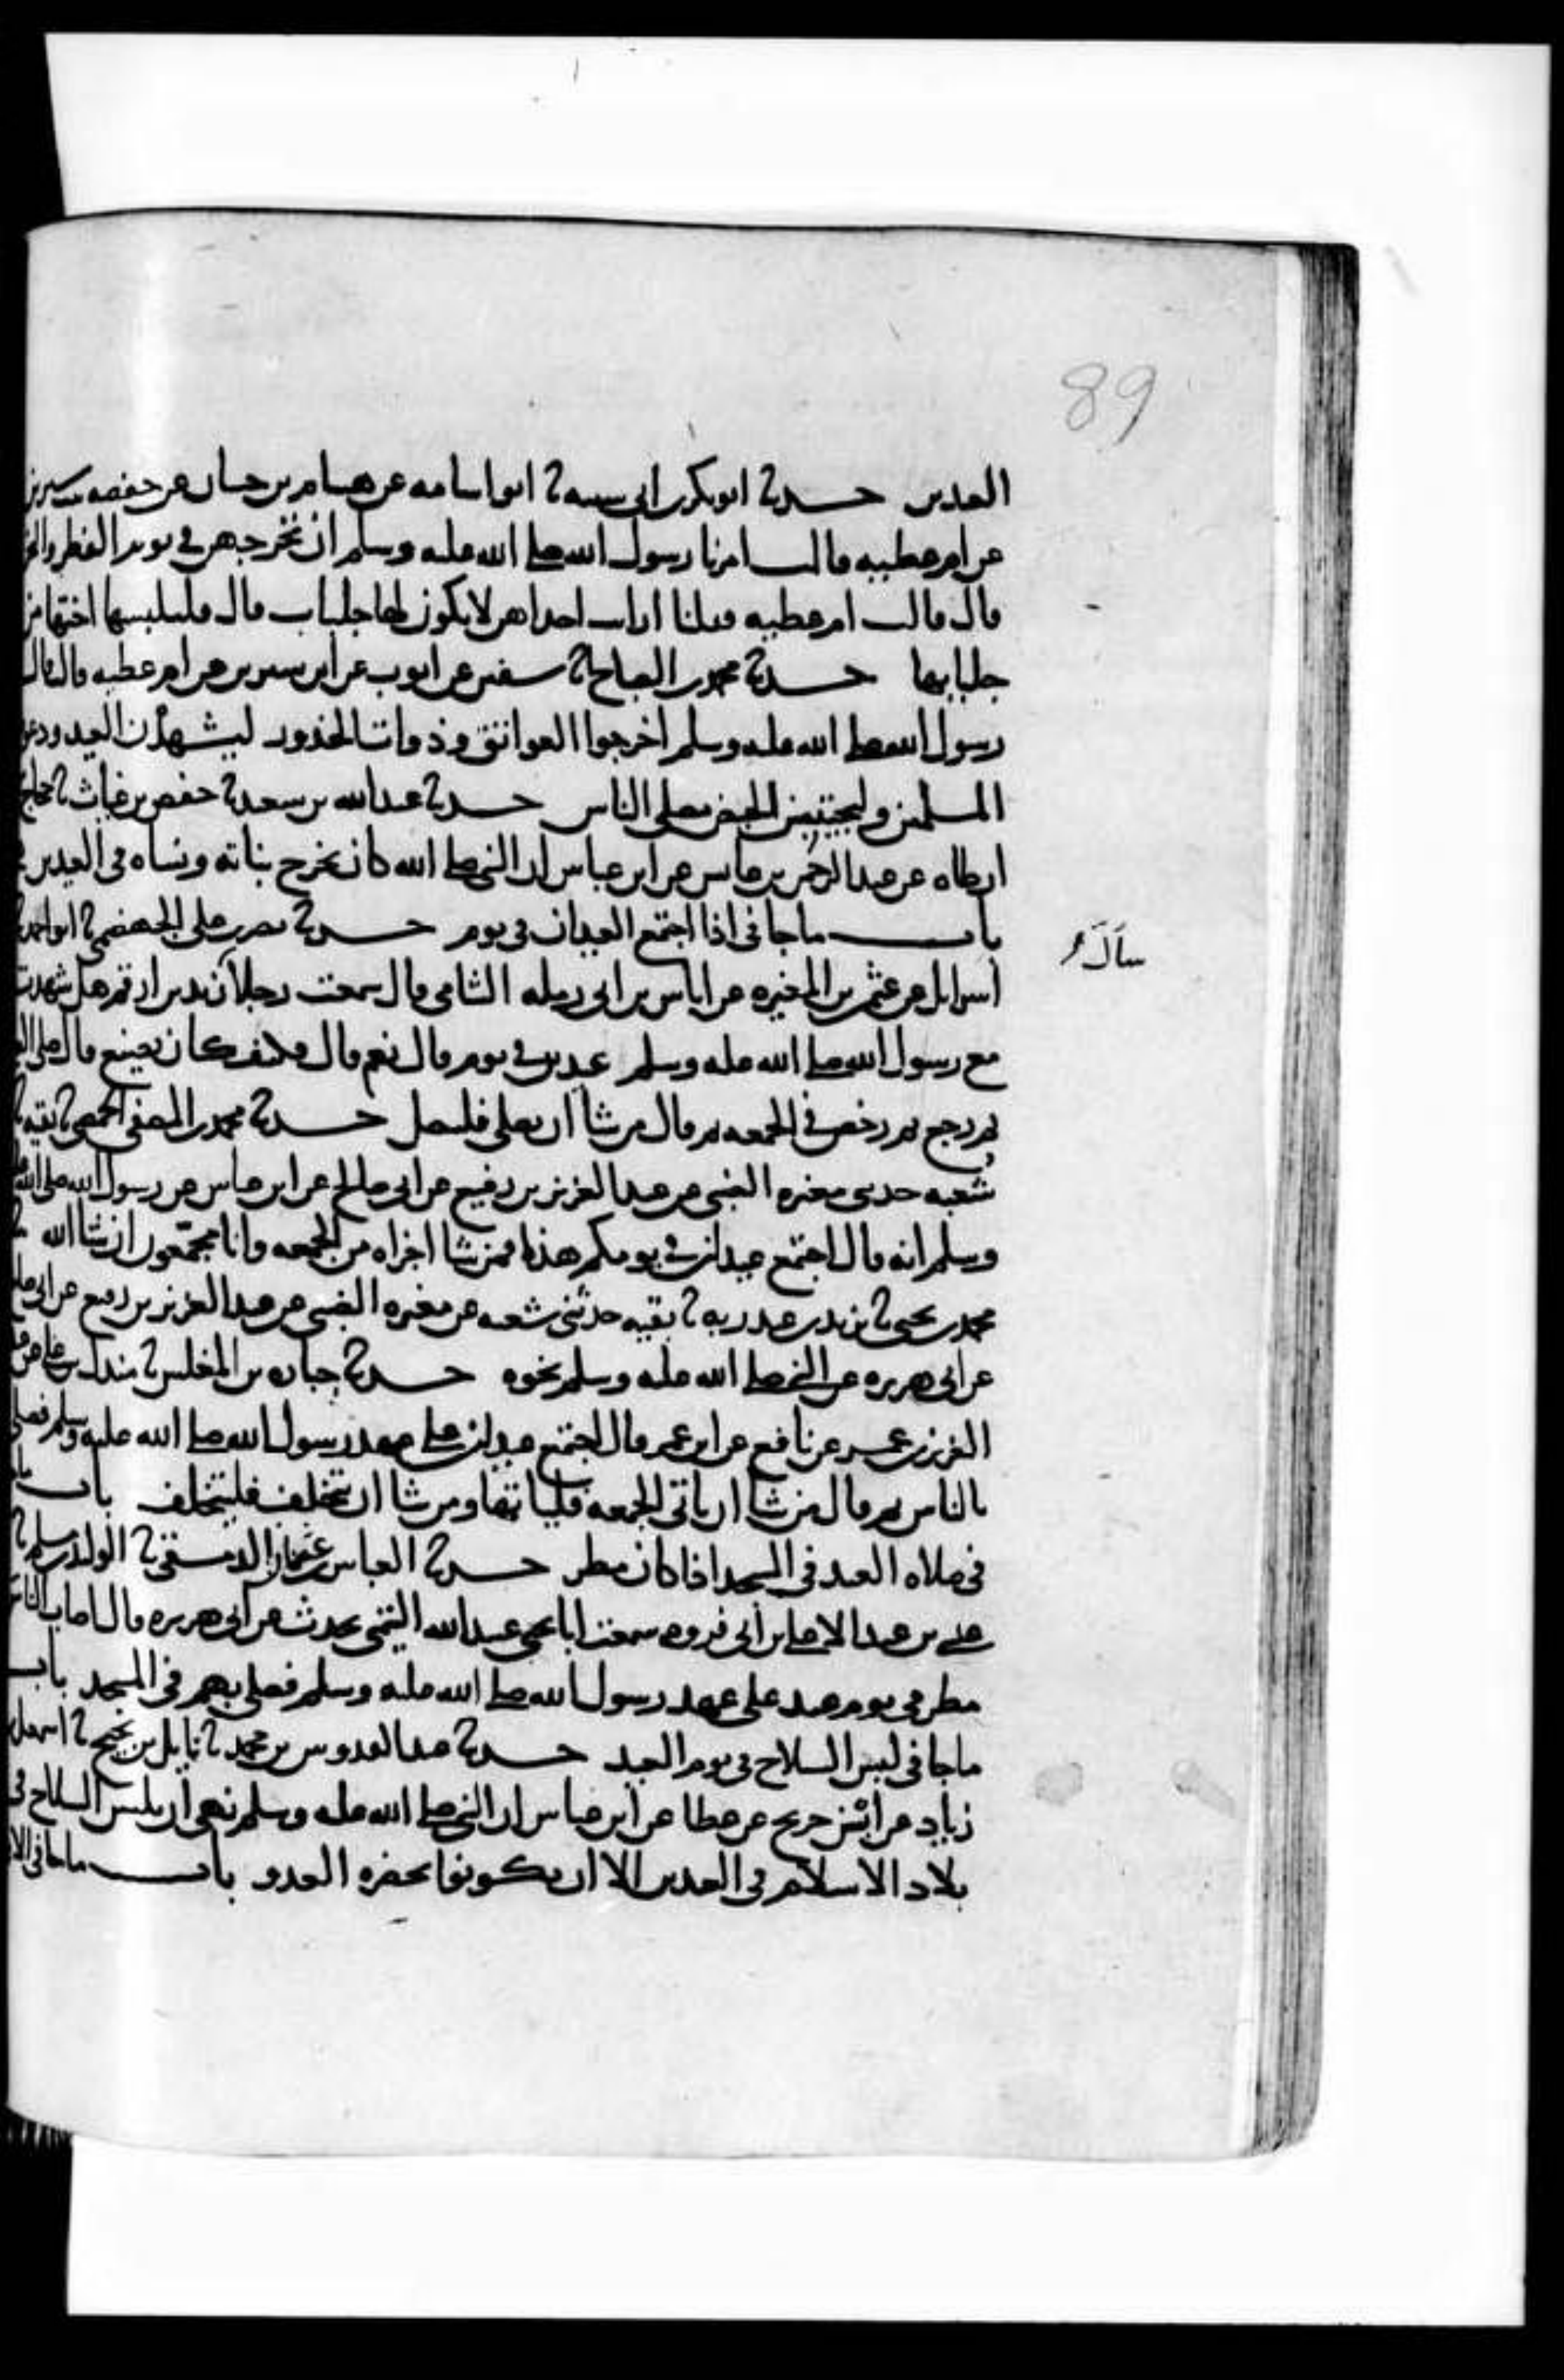 89
العيدين حدثنا ابو بكر بن ابي شيبه ثنا ابو اسامه عن هشام بن حسان عن حفصه بنت سيرين
عن ام عطيه قالت امرنا رسول الله صلى الله عليه وسلم ان نخرجهن في يوم الفطر والنحر
قال قالت ام عطيه فقلنا ارايت احداهن لا يكون لها جلباب قال فلتلبسها اختها من
جلبابها حدثنا محمد بن الصباح ثنا سفين عن ايوب عن ابن سيرين عن ام عطيه قالت قال
رسول الله صلى الله عليه وسلم اخرجوا العواتق وذوات الخدور ليشهدن العيد ودعوة
المسلمين وليجتنبن الحيض مصلى الناس حدثنا عبد الله بن سعيد ثنا حفص بن غياث ثنا حجاج
ارطاه عن عبد الرحمن بن عابس عن ابن عباس ان النبي صلى الله كان يخرج بناته ونساه في العيدين
باب ماجا في اذا اجتمع العيدان في يوم حدثنا نصر بن علي الجهضمي ثنا ابو احمد ثنا
سأل
اسرايل عن عثمن بن المغيره عن اياس بن ابي رمله الشامي قال سمعت رجلا زيد بن ارقم هل شهدت
مع رسول الله صلى الله عليه وسلم عيدين في يوم قال نعم قال فكيف كان يصنع قال صلى العيد
ثم رجع ثم رخص في الجمعه ثم قال من شا ان يصلي فليصل حدثنا محمد بن المصفى الحمصي ثنا بقيه ثنا
شعبه حدثني مغيره الضبي عن عبد العزيز بن رفيع عن ابي صالح عن ابن عباس عن رسول الله صلى الله عليه
وسلم انه قال اجتمع عيدان في يومكم هذا فمن شا اجزاه من الجمعه وانا مجمعون ان شا الله
محمد بن يحيى ثنا يزيد بن عبد ربه ثنا بقيه حدثني شعبه عن مغيره الضبي عن عبد العزيز بن رفيع عن ابي صالح
عن ابي هريره عن النبي صلى الله عليه وسلم نحوه حدثنا جباره بن المغلس ثنا مندل بن علي عن عبد
العزيز بن عمر عن نافع عن ابن عمر قال اجتمع عيدان على عهد رسول الله صلى الله عليه وسلم فصلى
بالناس ثم قال من شا ان ياتي الجمعه فلياتها ومن شا ان يتخلف فليتخلف باب ما
في صلاه العيد في المسجد اذا كان مطر حدثنا العباس بن عثمان الدمشقي ثنا الوليد بن مسلم ثنا
عيسى بن عبد الاعلى بن ابي فروه سمعت ابا يحيى عبيد الله التيمي يحدث عن ابي هريره قال اصاب الناس
مطر في يوم عيد على عهد رسول الله صلى الله عليه وسلم فصلى بهم في المسجد باب
ماجا في لبس السلاح في يوم العيد حدثنا عبد القدوس بن محمد ثنا نايل بن نجيح ثنا اسمعيل بن
زياد عن ابن جريج عن عطا عن ابن عباس ان النبي صلى الله عليه وسلم نهى ان يلبس السلاح في
بلاد الاسلام في العيدين الا ان يكونوا بحضره العدو باب ماجا في الا